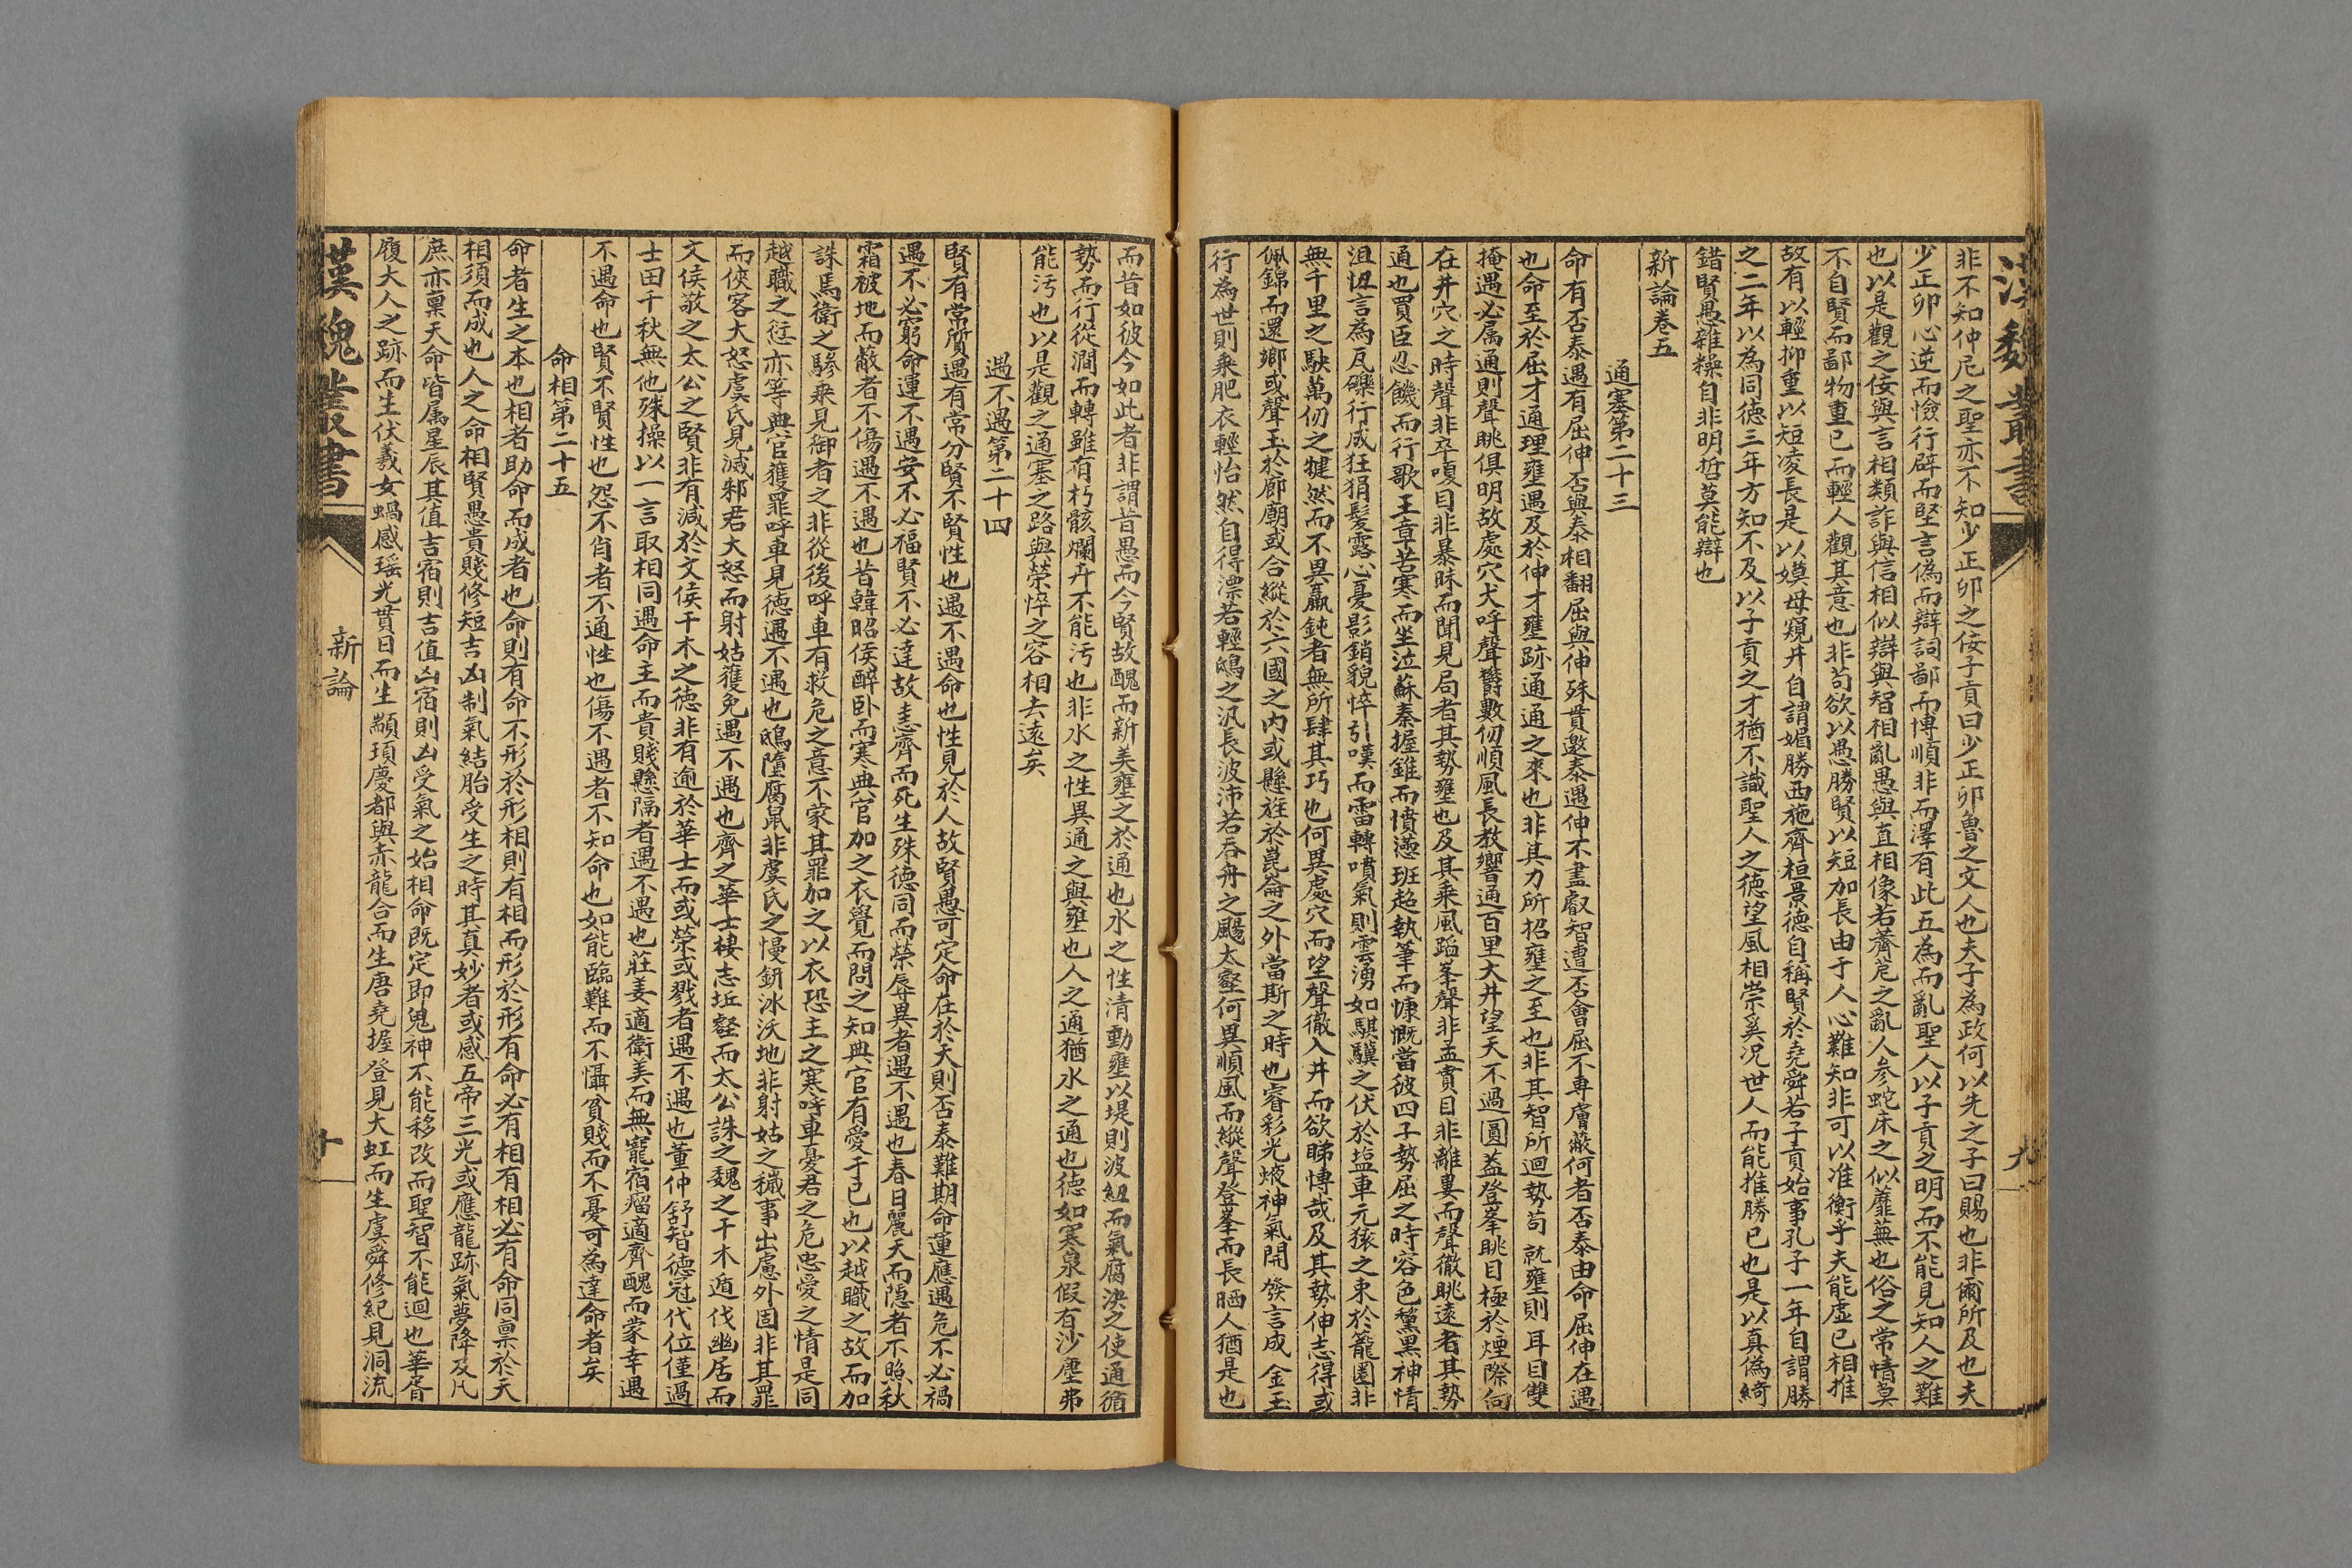 漢魏叢書
九
非不知仲尼之聖亦不知少正卯之佞子貢曰少正卯魯之文人也夫子為政何以先之子曰賜也非爾所及也夫
少正卯心逆而憸行辟而堅言偽而辯詞鄙而博順非而澤有此五為而亂聖人以子貢之明而不能見知人之難
也以是觀之佞與言相類詐與信相似辯與智相亂愚與直相像若薺苨之亂人參蛇床之似蘼蕪也俗之常情莫
不自賢而鄙物重已而輕人觀其意也非苟欲以愚勝賢以短加長由于人心難知非可以准衡乎夫能虛已相推
故有以輕抑重以短凌長是以嫫母窺井自謂媚勝西施齊桓景德自稱賢於堯舜若子貢始事孔子一年自謂勝
之二年以為同德三年方知不及以子貢之才猶不識聖人之德望風相崇奚况世人而能推勝已也是以真偽綺
錯賢愚雜糅自非明哲莫能辯也
新論卷五
通塞第二十三
命有否泰遇有屈伸否與泰相翻屈與伸殊貫邀泰遇伸不盡叡智遭否會屈不專膚蔽何者否泰由命屈伸在遇
也命至於屈才通理壅遇及於伸才壅跡通通之來也非其力所招壅之至也非其智所迴勢苟就壅則耳目雙
掩遇必属通則聲眺俱明故處穴犬呼聲鬱數仞順風長教響通百里大井望天不過圓葢登峯眺目極於煙際向
在井穴之時聲非卒嗄目非暴昧而聞見局者其勢壅也及其乘風蹈峯聲非孟賁目非離婁而聲徹眺遠者其勢
通也買臣忍饑而行歌王章苦寒而坐泣蘇秦握錐而憤懣班超執筆而慷慨當彼四子勢屈之時容色黧黑神情
沮忸言為瓦礫行成狂狷髮露心憂影銷貌悴引嘆而雷轉噴氣則雲湧如騏驥之伏於塩車元猿之束於籠圈非
無千里之駃萬仞之揵然而不異羸鈍者無所肆其巧也何異處穴而望聲徹入井而欲睇博哉及其勢伸志得或
佩錦而還鄉或聲玉於廊廟或合縱於六國之内或懸旌於崑崙之外當斯之時也睿彩光㷊神氣開發言成金玉
行為世則乘肥衣輕怡然自得漂若輕鴟之汎長波沛若吞舟之颺太壑何異順風而縱聲登峯而長晒人猶是也
而昔如彼今如此者非謂昔愚而今賢故醜而新美壅之於通也水之性清動壅以堤則波紐而氣腐決之使通循
勢而行從澗而轉雖有朽骸爛卉不能污也非水之性異通之與壅也人之通猶水之通也德如寒泉假有沙塵弗
能污也以是觀之通塞之路與榮悴之容相去遠矣
遇不遇第二十四
賢有常質遇有常分賢不賢性也遇不遇命也性見於人故賢愚可定命在於天則否泰難期命運應遇危不必禍
遇不必窮命運不遇安不必福賢不必達故恚齊而死生殊德同而榮辱異者遇不遇也春日麗天而隱者不照秋
霜被地而蔽者不傷遇不遇也昔韓昭侯醉卧而寒典官加之衣覺而問之知典官有愛于已也以越職之故而加
誅焉衛之驂乘見御者之非從後呼車有救危之意不蒙其罪加之以衣恐主之寒呼車憂君之危忠愛之情是同
越職之愆亦等典官獲罪呼車見德遇不遇也鴟墮腐鼠非虞氏之慢鈃冰沃地非射姑之穢事出慮外固非其罪
而俠客大怒虞氏見滅邾君大怒而射姑獲免遇不遇也齊之華士棲志丘壑而太公誅之魏之干木遁伐幽居而
文侯敬之太公之賢非有減於文侯干木之德非有逾於華士而或榮或戮者遇不遇也董仲舒智德冠代位僅過
士田千秋無他殊操以一言取相同遇命主而貴賤懸隔者遇不遇也莊姜適衛美而無寵宿瘤適齊醜而蒙幸遇
不遇命也賢不賢性也怨不肖者不通性也傷不遇者不知命也如能臨難而不懾貧賤而不憂可為達命者矣
命相第二十五
命者生之本也相者助命而成者也命則有命不形於形相則有相而形於形有命必有相有相必有命同禀於天
相須而成也人之命相賢愚貴賤修短吉凶制氣結胎受生之時其真妙者或感五帝三光或應龍跡氣夢降及凡
庶亦稟天命皆属星辰其值吉宿則吉值凶宿則凶受氣之始相命既定即鬼神不能移改而聖智不能迴也華胥
履大人之跡而生伏羲女媧感瑶光貫日而生顓頊慶都與赤龍合而生唐堯握登見大虹而生虞舜修紀見洞流
漢魏叢書
新論
十